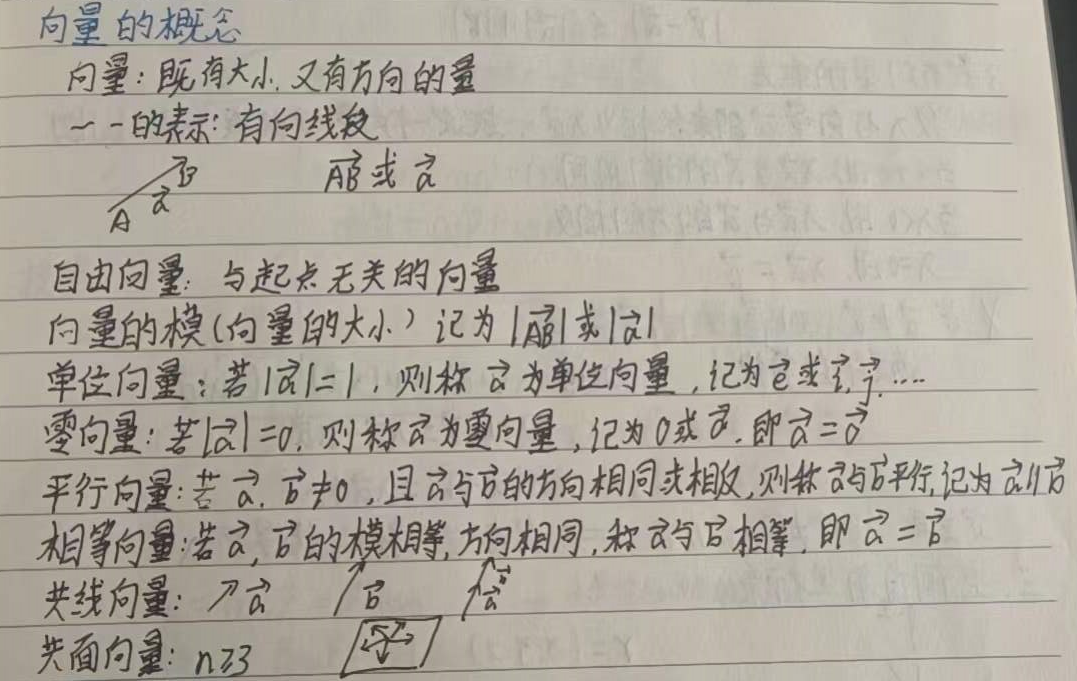 向量的概念
向量:既有大小.又有方向的量
一 - 的表示:有向线段
A B a⃗ AB⃗ 或 a⃗
自由向量:与起点无关的向量
向量的模(向量的大小) 记为 |AB⃗| 或 |a⃗|
单位向量:若|a⃗|=1,则称 a⃗ 为单位向量,记为 e⃗ 或 i⃗,j⃗....
零向量:若|a⃗|=0,则称 a⃗ 为零向量,记为0或 0⃗.即 a⃗=0⃗
平行向量:若 a⃗, b⃗≠0,且 a⃗与b⃗的方向相同或相反,则称 a⃗与b⃗平行,记为 a⃗∥b⃗
相等向量:若 a⃗, b⃗ 的模相等,方向相同,称 a⃗与 b⃗ 相等,即 a⃗=b⃗
共线向量: a⃗ b⃗ b⃗ a⃗
共面向量: n≥3